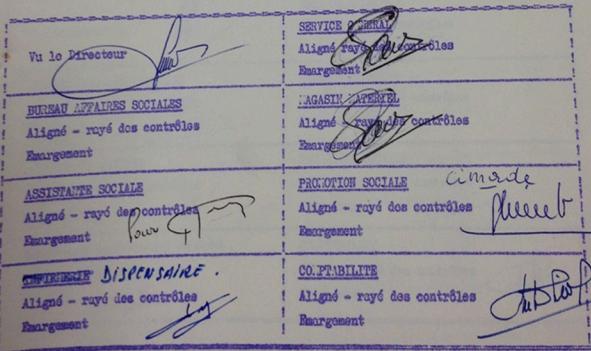 Vu le Directeur
BUREAU AFFAIRES SOCIALES
Aligné - rayé des contrôles
Emargement
ASSISTANTE SOCIALE
Aligné - rayé des contrôles
Pour
Emargement
INFIRMERIE DISPENSAIRE.
Aligné - rayé des contrôles
Emargement
SERVICE GENERAL
Aligné rayé des contrôles
Emargement
MAGASIN MATERIEL
Aligné - rayé des contrôles
Emargement
PROMOTION SOCIALE
Cimade
Aligné - rayé des contrôles
Emargement
CO.PTABILITE
Aligné - rayé des contrôles
Emargement